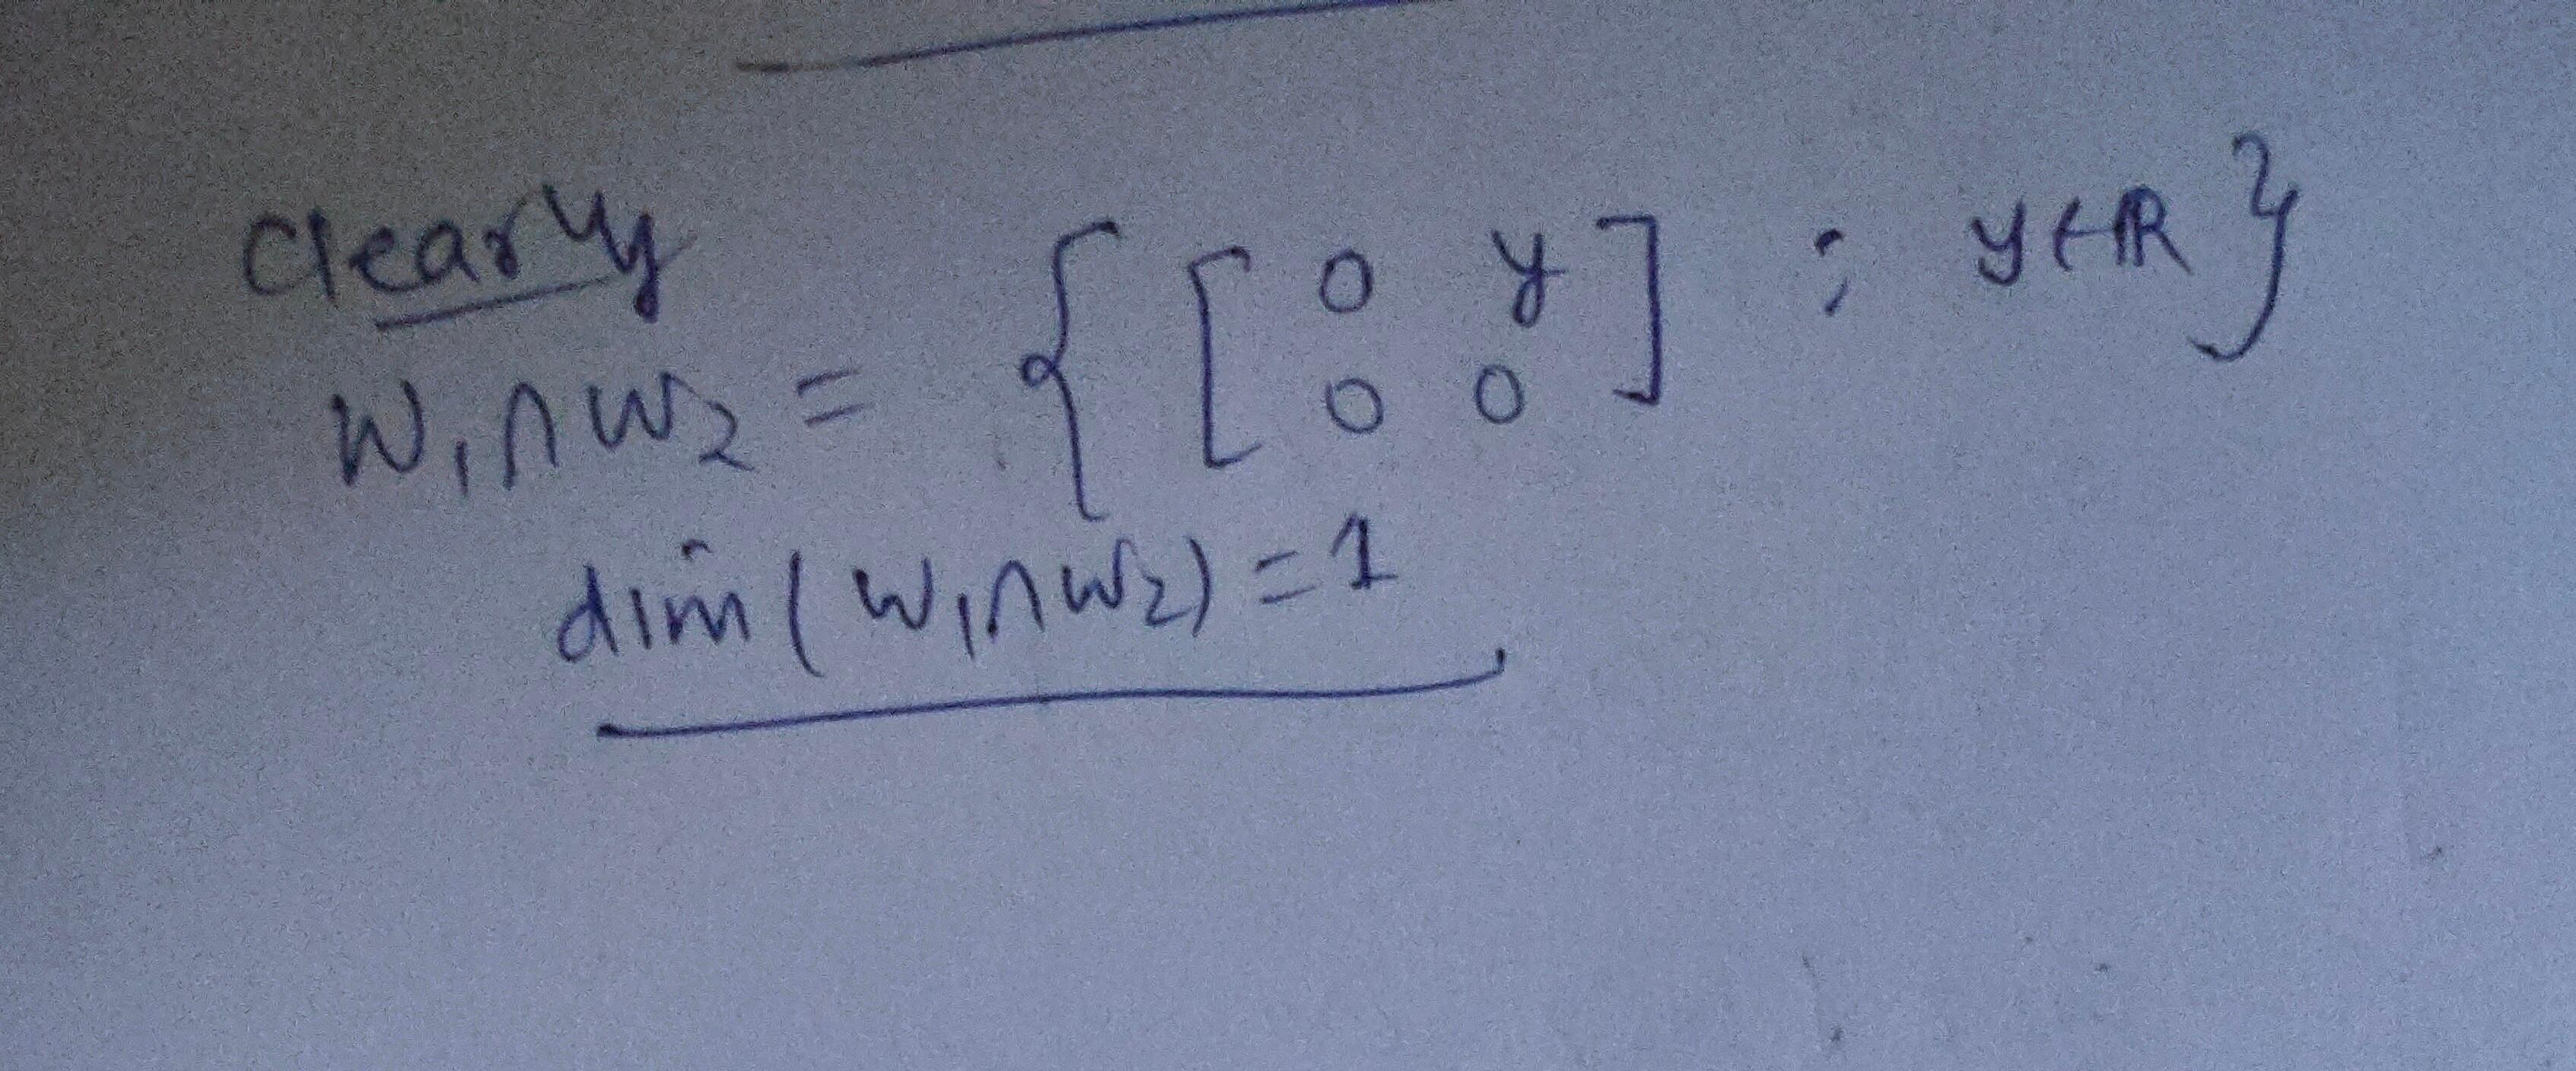 Clearly
W₁∩W₂ = { [ 0 y ] : y∈ℝ }
[ 0 0 ]
dim(W₁∩W₂) = 1